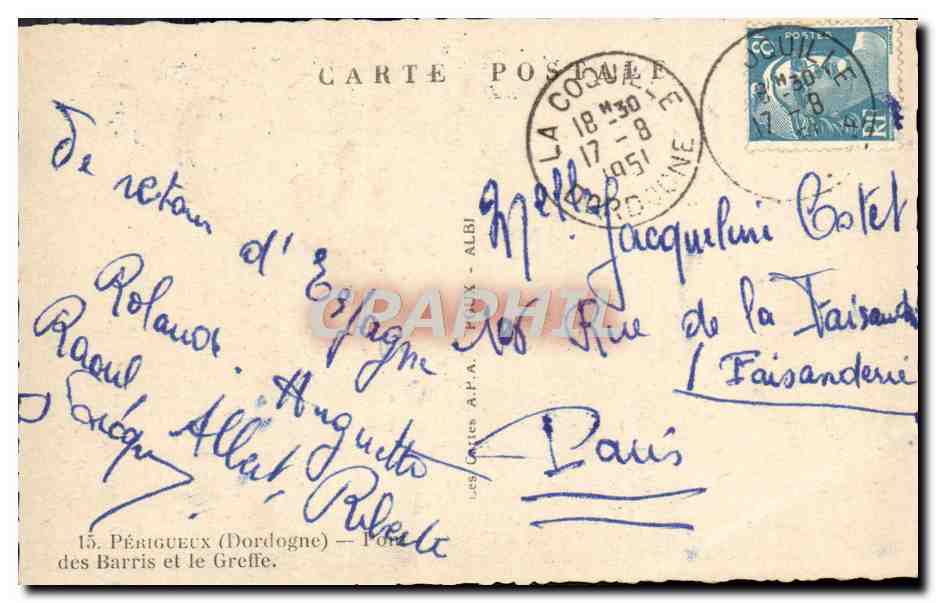 CARTE POSTALE
POSTES
LA COQUILLE
18 H 30
17 - 8
1951
DORDOGNE
De retour
d'Espagne
Roland. Huguette
Raoul Albert, Roberte
Melle Jacqueline Costet
Rue de la Faisanderie
/ Faisanderie
Paris
Les Cartes A.P.A. POUX - ALBI
CPAPHIL
15. PÉRIGUEUX (Dordogne) —
des Barris et le Greffe.